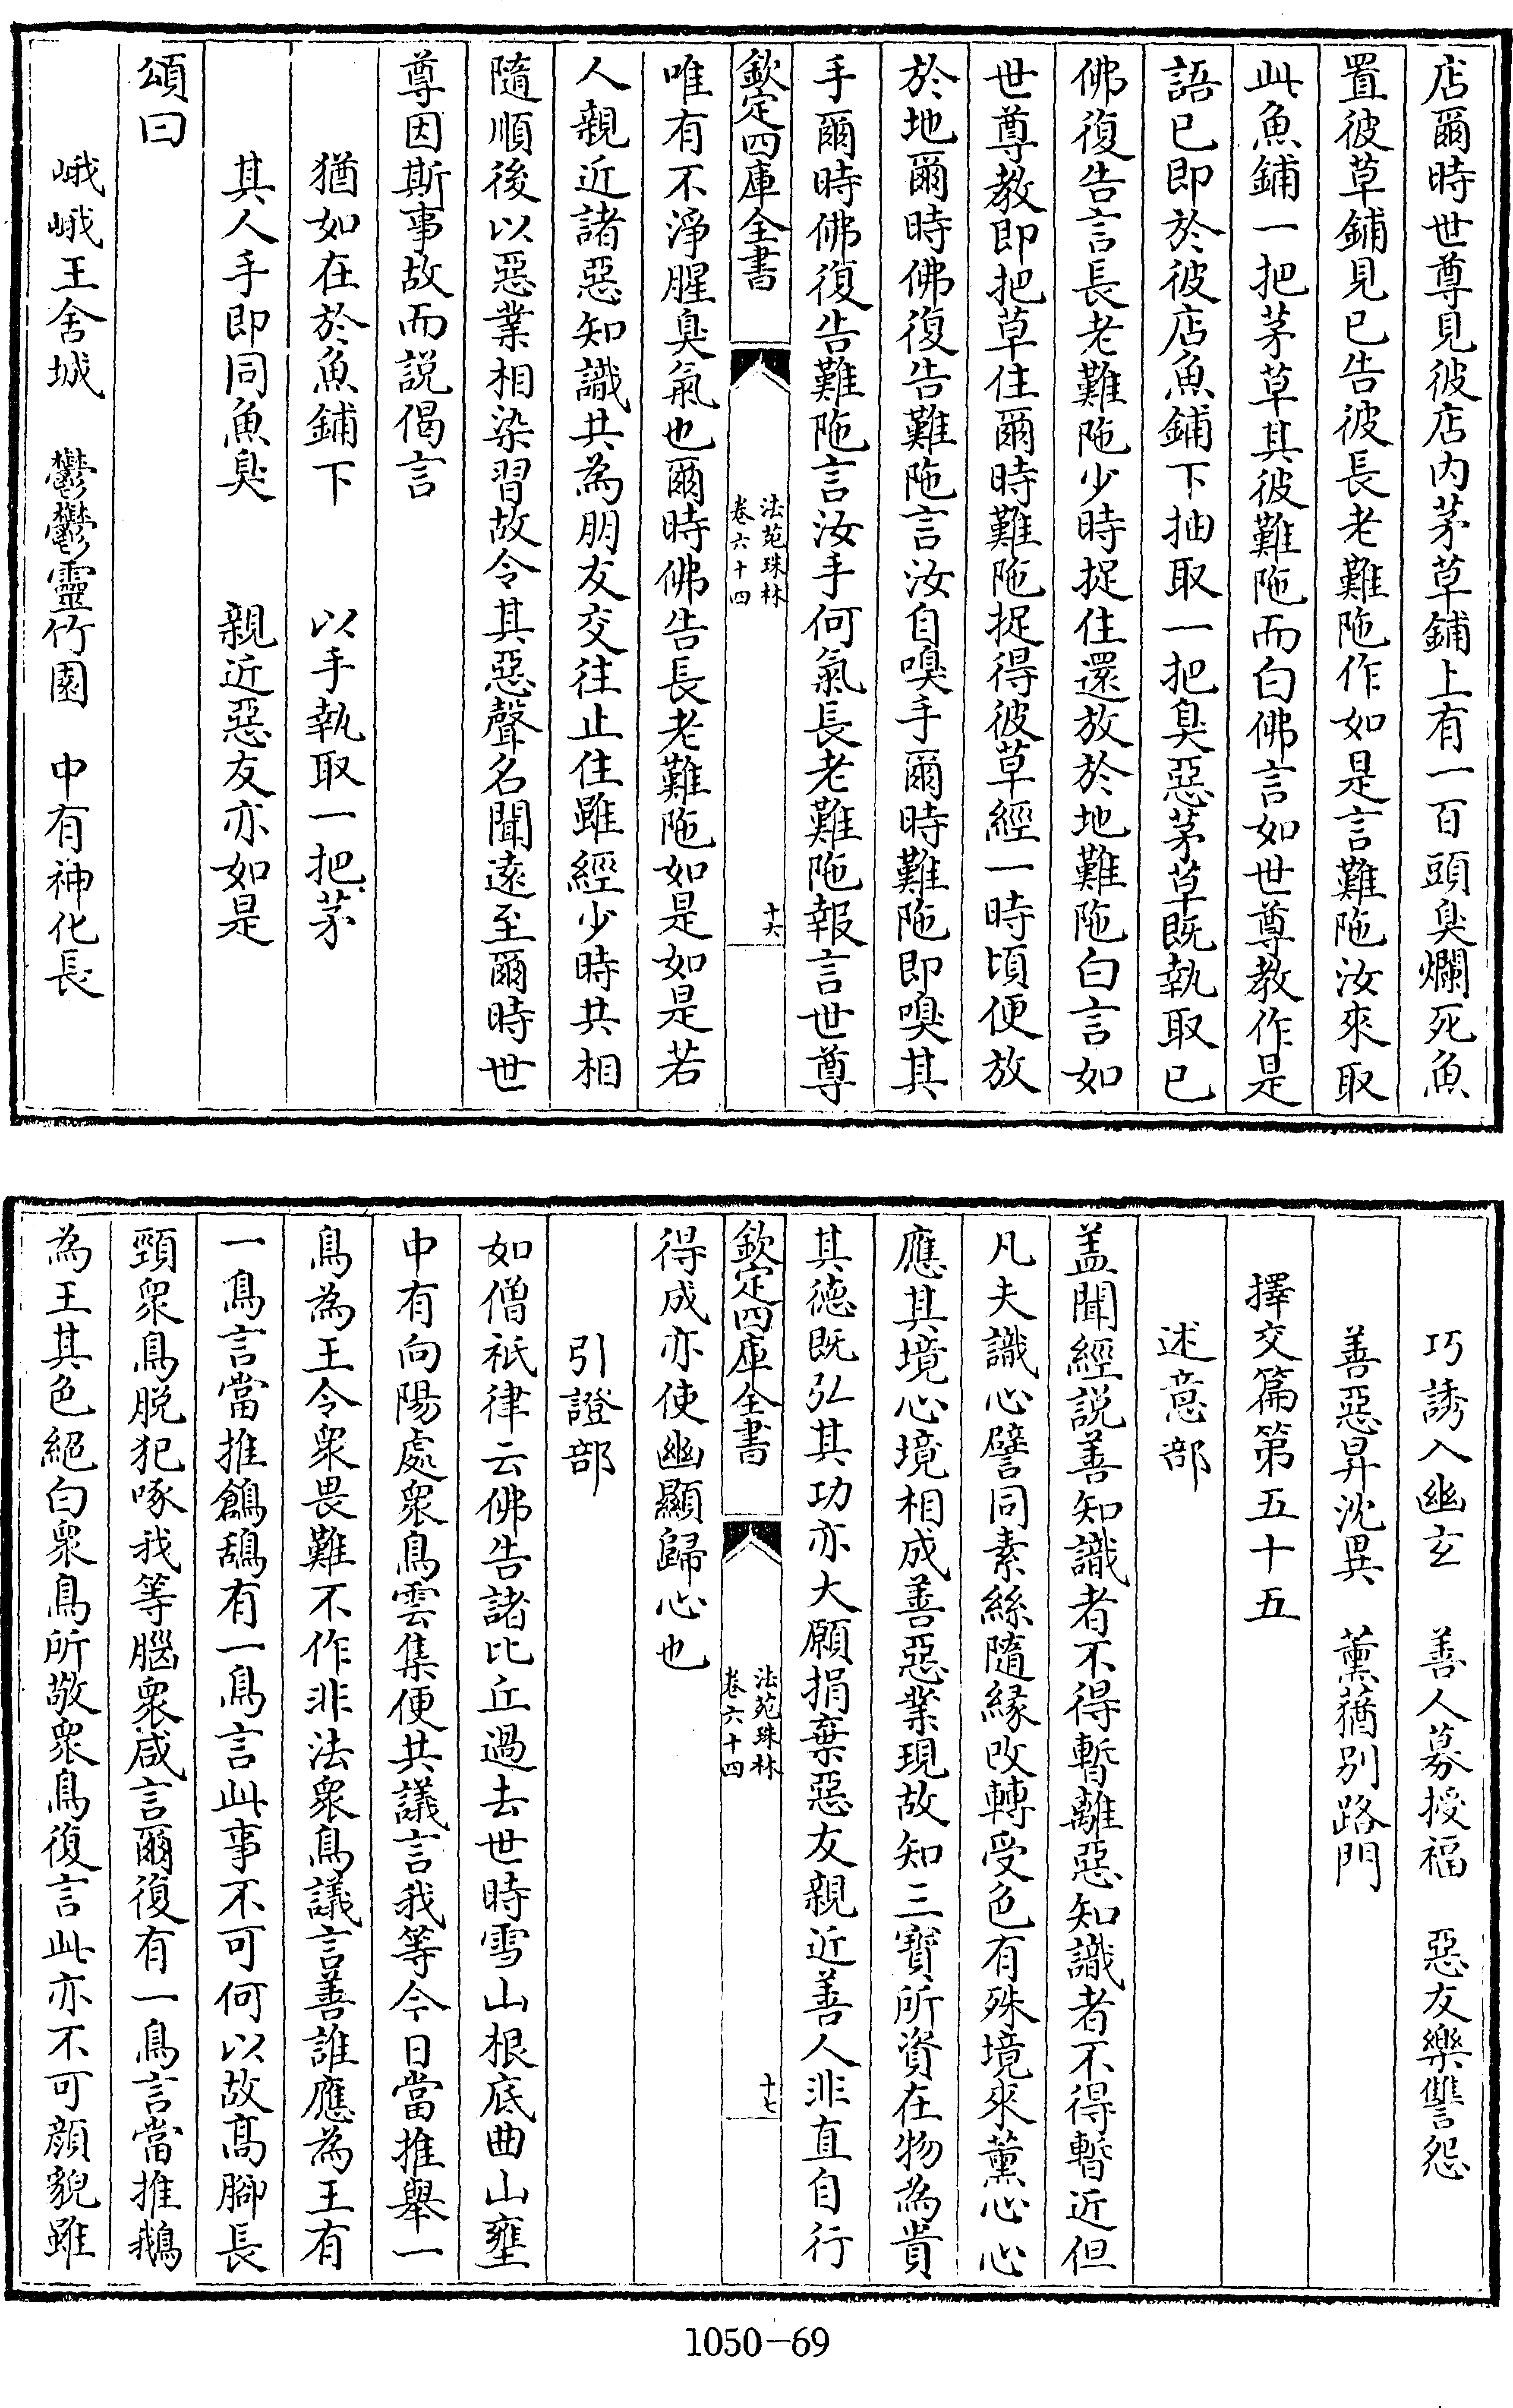 店爾時世尊見彼店内茅草鋪上有一百頭臭爛死魚
置彼草鋪見已告彼長老難陁作如是言難陁汝來取
此魚鋪一把茅草其彼難陁而白佛言如世尊教作是
語已即於彼店魚鋪下抽取一把臭惡茅草既執取已
佛復告言長老難陁少時捉住還放於地難陁白言如
世尊教即把草住爾時難陁捉得彼草經一時頃便放
於地爾時佛復告難陁言汝自嗅手爾時難陁即嗅其
手爾時佛復告難陁言汝手何氣長老難陁報言世尊
欽定四庫全書
法苑珠林
卷六十四
十六
唯有不淨腥臭氣也爾時佛告長老難陁如是如是若
人親近諸惡知識共為朋友交往止住雖經少時共相
隨順後以惡業相染習故令其惡聲名聞遠至爾時世
尊因斯事故而説偈言
猶如在於魚鋪下 以手執取一把茅
其人手即同魚臭 親近惡友亦如是
頌曰
峨峨王舍城 鬱鬱靈竹園 中有神化長
巧誘入幽玄 善人募授福 惡友樂讐怨
善惡昇沈異 薰蕕别路門
擇交篇第五十五
述意部
盖聞經説善知識者不得暫離惡知識者不得暫近但
凡夫識心譬同素絲隨緣改轉受色有殊境來薰心心
應其境心境相成善惡業現故知三寶所資在物為貴
其徳既弘其功亦大願捐棄惡友親近善人非直自行
欽定四庫全書
法苑珠林
卷六十四
十七
得成亦使幽顯歸心也
引證部
如僧祇律云佛告諸比丘過去世時雪山根底曲山壅
中有向陽處衆鳥雲集便共議言我等今日當推舉一
鳥為王令衆畏難不作非法衆鳥議言善誰應為王有
一鳥言當推鶬鴰有一鳥言此事不可何以故髙腳長
頸衆鳥脱犯啄我等腦衆咸言爾復有一鳥言當推鵝
為王其色絕白衆鳥所敬衆鳥復言此亦不可顔貌雖
1050-69